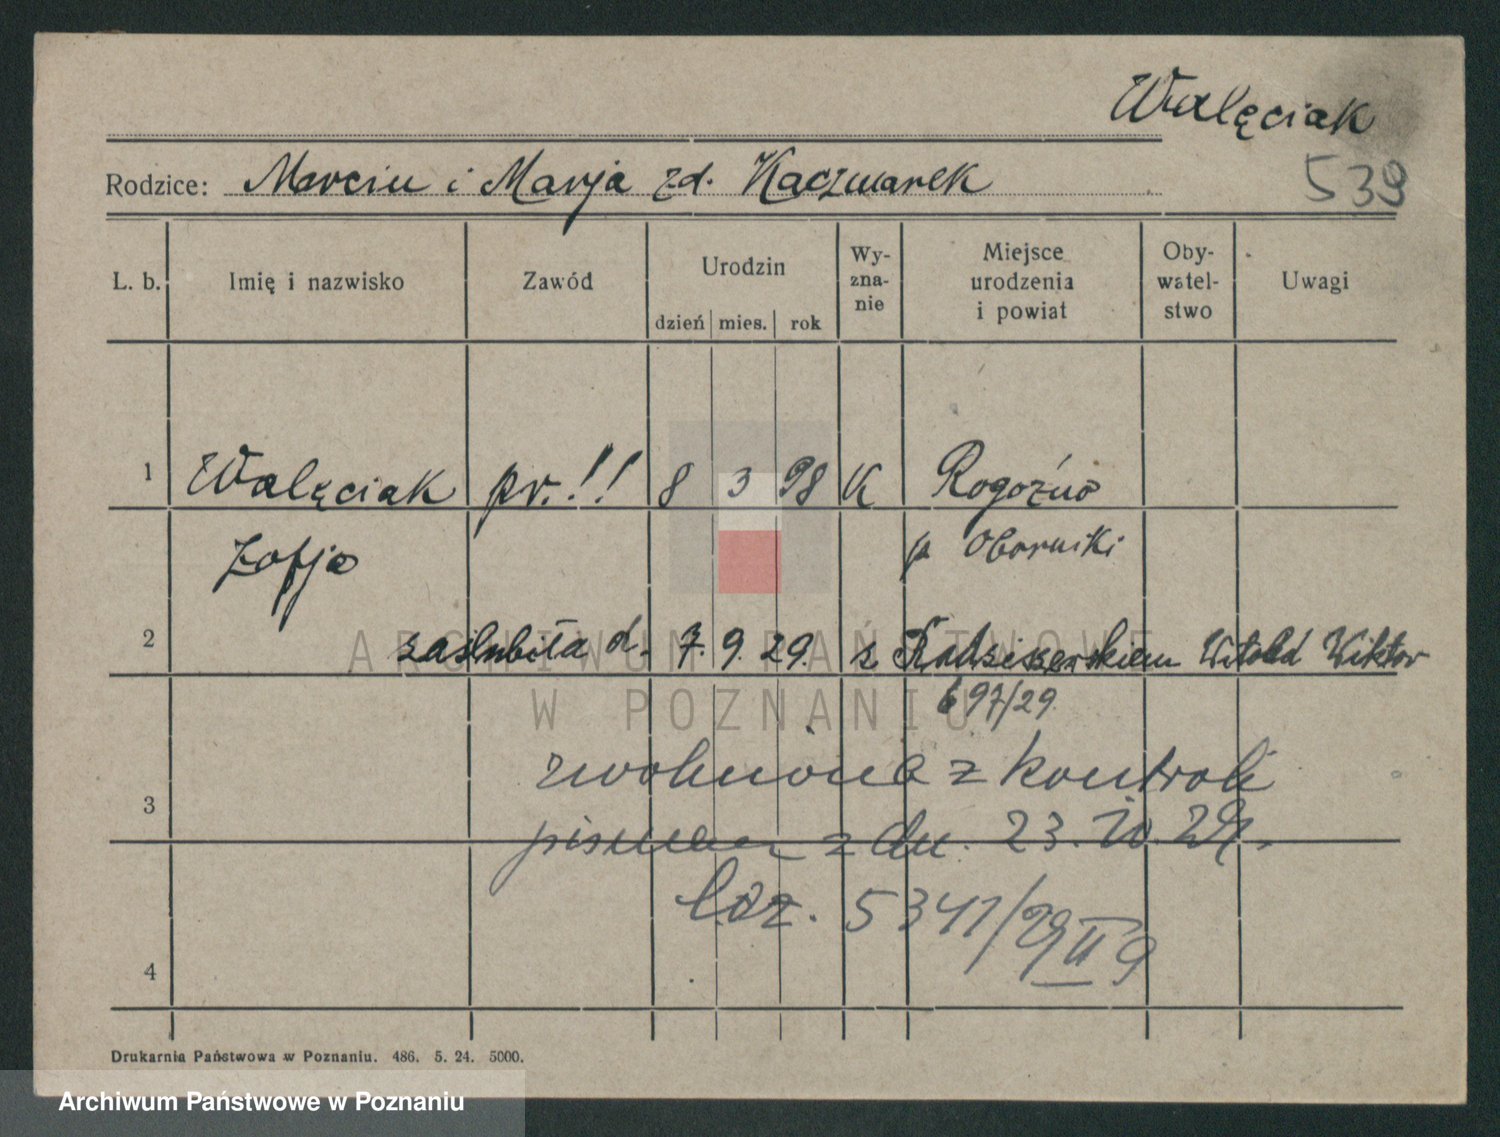 Walęciak
539
Rodzice: Marcin i Marja zd. Kaczmarek
L. b. Imię i nazwisko Zawód Urodzin dzień mies. rok Wy-zna-nie Miejsce urodzenia i powiat Oby-watel-stwo Uwagi
1 Walęciak pr.!! 8 3 98 K Rogoźno
Zofja p Oborniki
2 zaślubiła d. 7. 9. 29. z Radziszewskiem Witold Wiktor
697/29.
zwolniona z kontroli
3
pismem z dn. 23. IV. 29.
Ldz. 5341/29 II 9
4
Drukarnia Państwowa w Poznaniu. 486. 5. 24. 5000.
ARCHIWUM PAŃSTWOWE
W POZNANIU
Archiwum Państwowe w Poznaniu